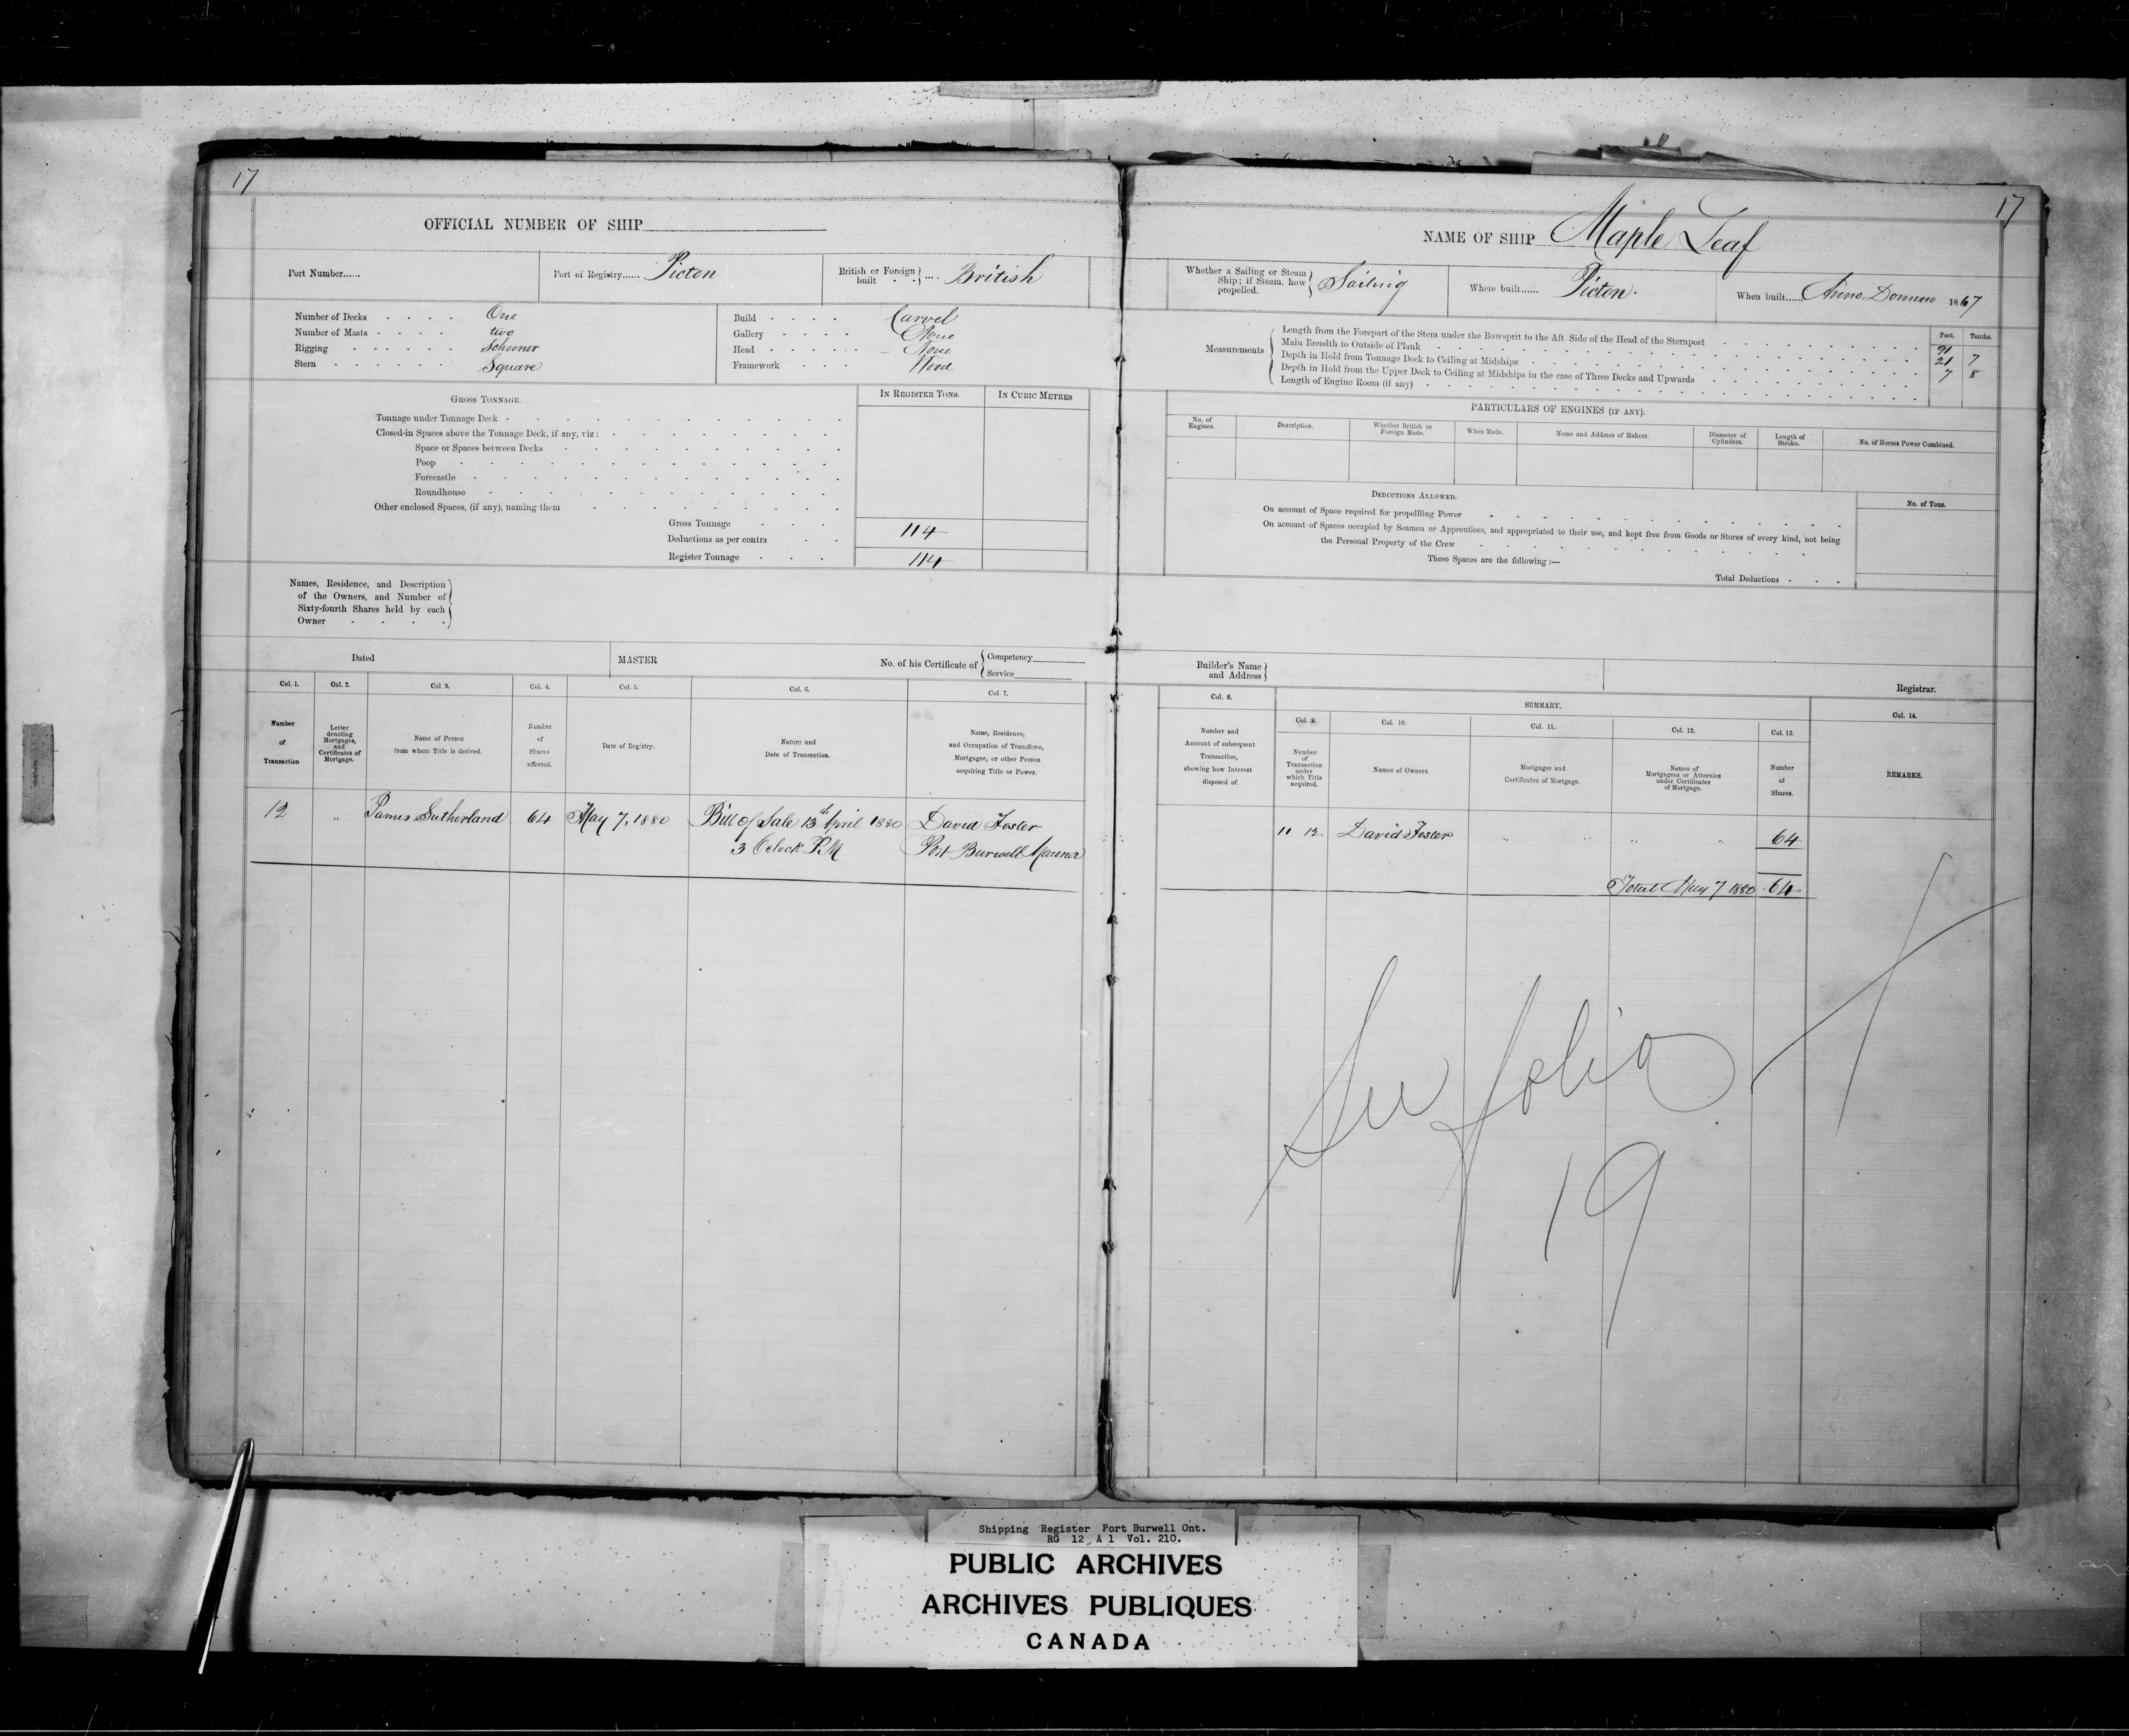 17
OFFICIAL NUMBER OF SHIP
Port Number......
Port of Registry...... Picton
British or Foreign built .... British
Number of Decks . . . . One
Number of Masts . . . . two
Rigging . . . . . . Schooner
Stern . . . . . . Square
Build . . . . Carvel
Gallery . . . . None
Head . . . . . None
Framework . . . Wood
GROSS TONNAGE.
IN REGISTER TONS.
IN CUBIC METRES
Tonnage under Tonnage Deck
Closed-in Spaces above the Tonnage Deck, if any, viz:
Space or Spaces between Decks
Poop
Forecastle
Roundhouse
Other enclosed Spaces, (if any), naming them
Gross Tonnage 114
Deductions as per contra
Register Tonnage 114
Names, Residence, and Description
of the Owners, and Number of
Sixty-fourth Shares held by each
Owner
Dated
MASTER
No. of his Certificate of { Competency
Service
Col. 1. Col. 2. Col 3. Col. 4. Col. 5. Col. 6. Col. 7.
Number of Transaction
Letter denoting Mortgages, and Certificates of Mortgage.
Name of Person from whom Title is derived.
Number of Shares affected.
Date of Registry.
Nature and Date of Transaction.
Name, Residence, and Occupation of Transferee, Mortgagee, or other Person acquiring Title or Power.
12 " James Sutherland 64 May 7, 1880 Bill of Sale 13th April 1880 David Foster
3 Oclock P.M Port Burwell Mariner
17
NAME OF SHIP Maple Leaf
Whether a Sailing or Steam Ship; if Steam, how propelled. Sailing
Where built...... Picton.
When built...... Anno Domino 1867
Measurements
Feet. Tenths.
Length from the Forepart of the Stem under the Bowsprit to the Aft Side of the Head of the Sternpost 91
Main Breadth to Outside of Plank 21 7
Depth in Hold from Tonnage Deck to Ceiling at Midships 7 8
Depth in Hold from the Upper Deck to Ceiling at Midships in the case of Three Decks and Upwards
Length of Engine Room (if any)
PARTICULARS OF ENGINES (IF ANY).
No. of Engines.
Description.
Whether British or Foreign Made.
When Made.
Name and Address of Makers.
Diameter of Cylinders.
Length of Stroke.
No. of Horses Power Combined.
DEDUCTIONS ALLOWED.
No. of Tons.
On account of Space required for propellling Power
On account of Spaces occupied by Seamen or Apprentices, and appropriated to their use, and kept free from Goods or Stores of every kind, not being
the Personal Property of the Crew
These Spaces are the following :—
Total Deductions
Builder's Name and Address
Registrar.
Col. 8.
SUMMARY.
Col. 14.
Col. 9. Col. 10. Col. 11. Col. 12. Col. 13.
Number and Account of subsequent Transaction, showing how Interest disposed of.
Number of Transaction under which Title acquired.
Names of Owners.
Mortgages and Certificates of Mortgage.
Names of Mortgagees or Attornies under Certificates of Mortgage.
Number of Shares.
REMARKS.
11 12 David Foster " " " " 64
Total May 7 1880 64
See folio
19
Shipping Register Port Burwell Ont.
RG 12 A 1 Vol. 210.
PUBLIC ARCHIVES
ARCHIVES PUBLIQUES
CANADA